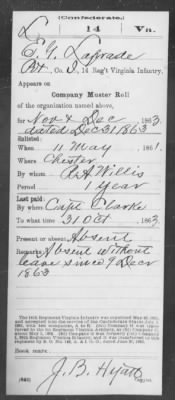 (Confederate.)
L 14 Va.
E. G. Lafrade
Pvt., Co. I, 14 Reg't Virginia Infantry.
Appears on
Company Muster Roll
of the organization named above,
for Nov & Dec, 1863
dated Dec 31 1863
Enlisted:
When 11 May, 1861.
Where Chester
By whom Willis
Period 1 Year
Last paid:
By whom Capt Clarke
To what time 31 Oct, 1863.
Present or absent Absent
Remarks: Absent without
leave since 9 Decr
1863
Book mark:
J. B. Hyatt
(642) Copyist.